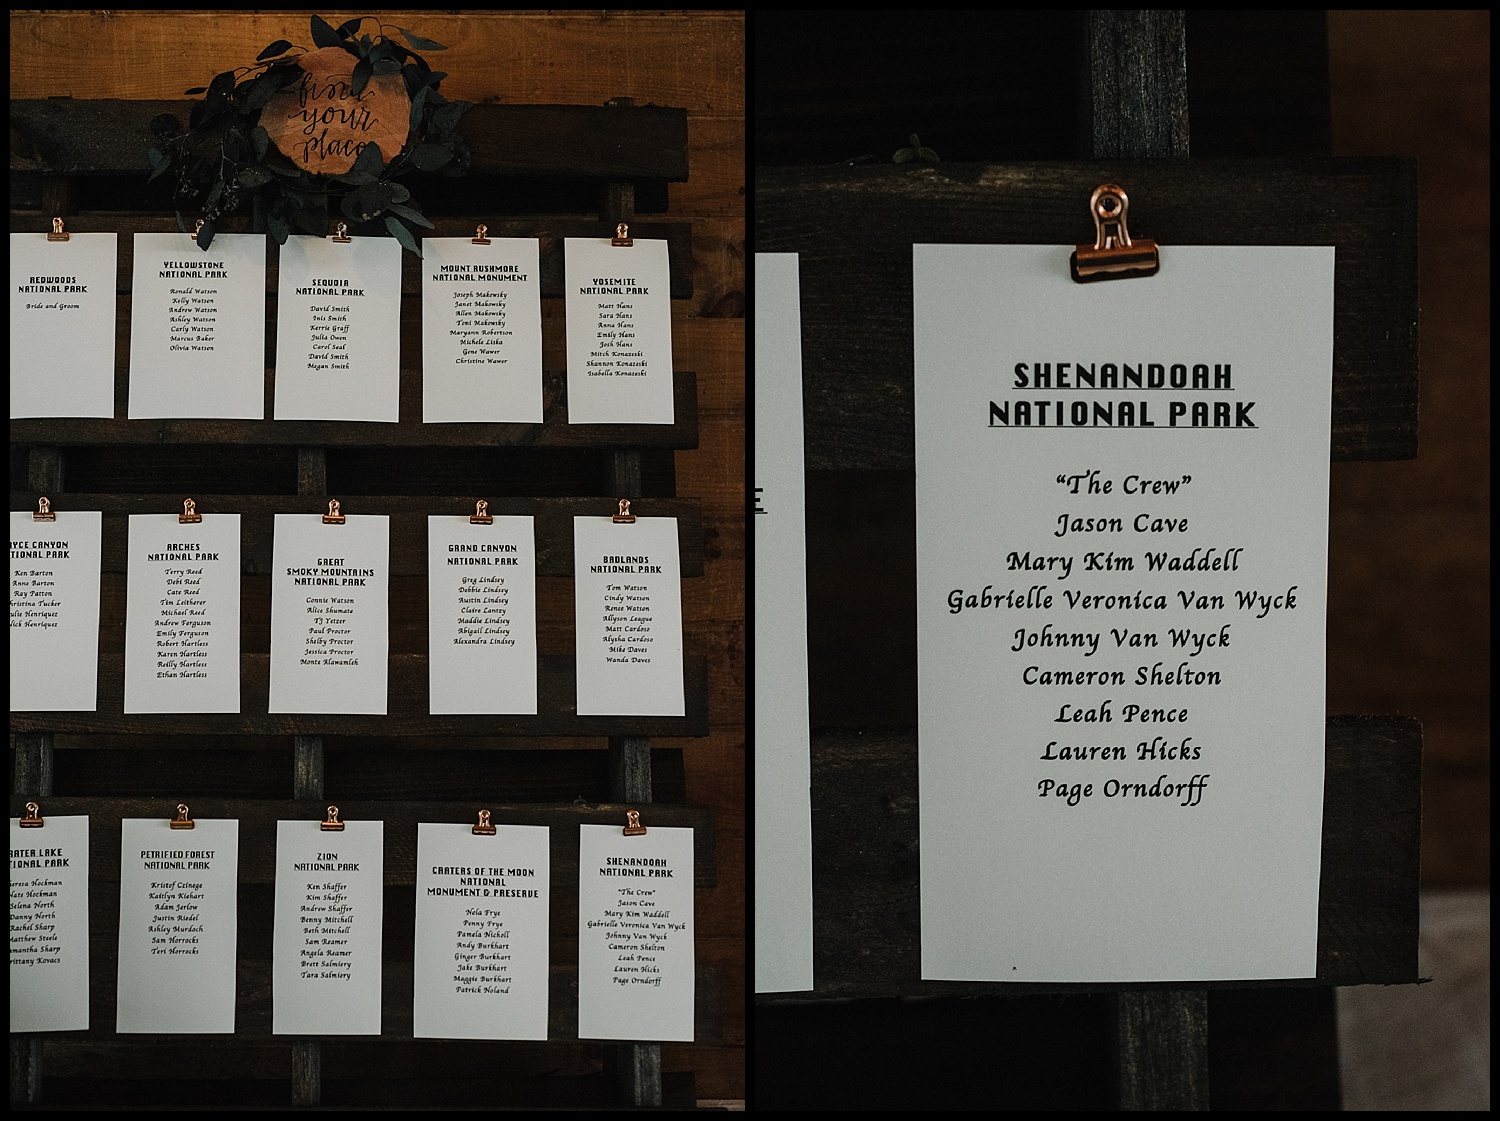 find
your
place
REDWOODS
NATIONAL PARK
Bride and Groom
YELLOWSTONE
NATIONAL PARK
Ronald Watson
Kelly Watson
Andrew Watson
Ashley Watson
Carly Watson
Marcus Baker
Olivia Watson
SEQUOIA
NATIONAL PARK
David Smith
Inis Smith
Kerrie Graff
Julia Owen
Carol Seal
David Smith
Megan Smith
MOUNT RUSHMORE
NATIONAL MONUMENT
Joseph Makowsky
Janet Makowsky
Allen Makowsky
Toni Makowsky
Maryann Robertson
Michele Liska
Gene Wawer
Christine Wawer
YOSEMITE
NATIONAL PARK
Matt Hans
Sara Hans
Anna Hans
Emily Hans
Josh Hans
Mitch Konazeski
Shannon Konazeski
Isabella Konazeski
YCE CANYON
TIONAL PARK
Ken Barton
Anne Barton
Ray Patton
hristina Tucker
ulie Henriquez
ick Henriquez
ARCHES
NATIONAL PARK
Terry Reed
Debi Reed
Cate Reed
Tim Leitherer
Michael Reed
Andrew Ferguson
Emily Ferguson
Robert Hartless
Karen Hartless
Reilly Hartless
Ethan Hartless
GREAT
SMOKY MOUNTAINS
NATIONAL PARK
Connie Watson
Alice Shumate
TJ Yetzer
Paul Proctor
Shelby Proctor
Jessica Proctor
Monte Alawamleh
GRAND CANYON
NATIONAL PARK
Greg Lindsey
Debbie Lindsey
Austin Lindsey
Claire Lantzy
Maddie Lindsey
Abigail Lindsey
Alexandra Lindsey
BADLANDS
NATIONAL PARK
Tom Watson
Cindy Watson
Renee Watson
Allyson League
Matt Cardoso
Alysha Cardoso
Mike Daves
Wanda Daves
ATER LAKE
IONAL PARK
heresa Hockman
Nate Hockman
Selena North
Danny North
Rachel Sharp
Matthew Steele
amantha Sharp
rittany Kovacs
PETRIFIED FOREST
NATIONAL PARK
Kristof Czinege
Kaitlyn Kiehart
Adam Jerlow
Justin Riedel
Ashley Murdoch
Sam Horrocks
Teri Horrocks
ZION
NATIONAL PARK
Ken Shaffer
Kim Shaffer
Andrew Shaffer
Benny Mitchell
Beth Mitchell
Sam Reamer
Angela Reamer
Brett Salmiery
Tara Salmiery
CRATERS OF THE MOON
NATIONAL
MONUMENT & PRESERVE
Nola Frye
Penny Frye
Pamela Nicholl
Andy Burkhart
Ginger Burkhart
Jake Burkhart
Maggie Burkhart
Patrick Noland
SHENANDOAH
NATIONAL PARK
"The Crew"
Jason Cave
Mary Kim Waddell
Gabrielle Veronica Van Wyck
Johnny Van Wyck
Cameron Shelton
Leah Pence
Lauren Hicks
Page Orndorff
E
SHENANDOAH
NATIONAL PARK
“The Crew”
Jason Cave
Mary Kim Waddell
Gabrielle Veronica Van Wyck
Johnny Van Wyck
Cameron Shelton
Leah Pence
Lauren Hicks
Page Orndorff